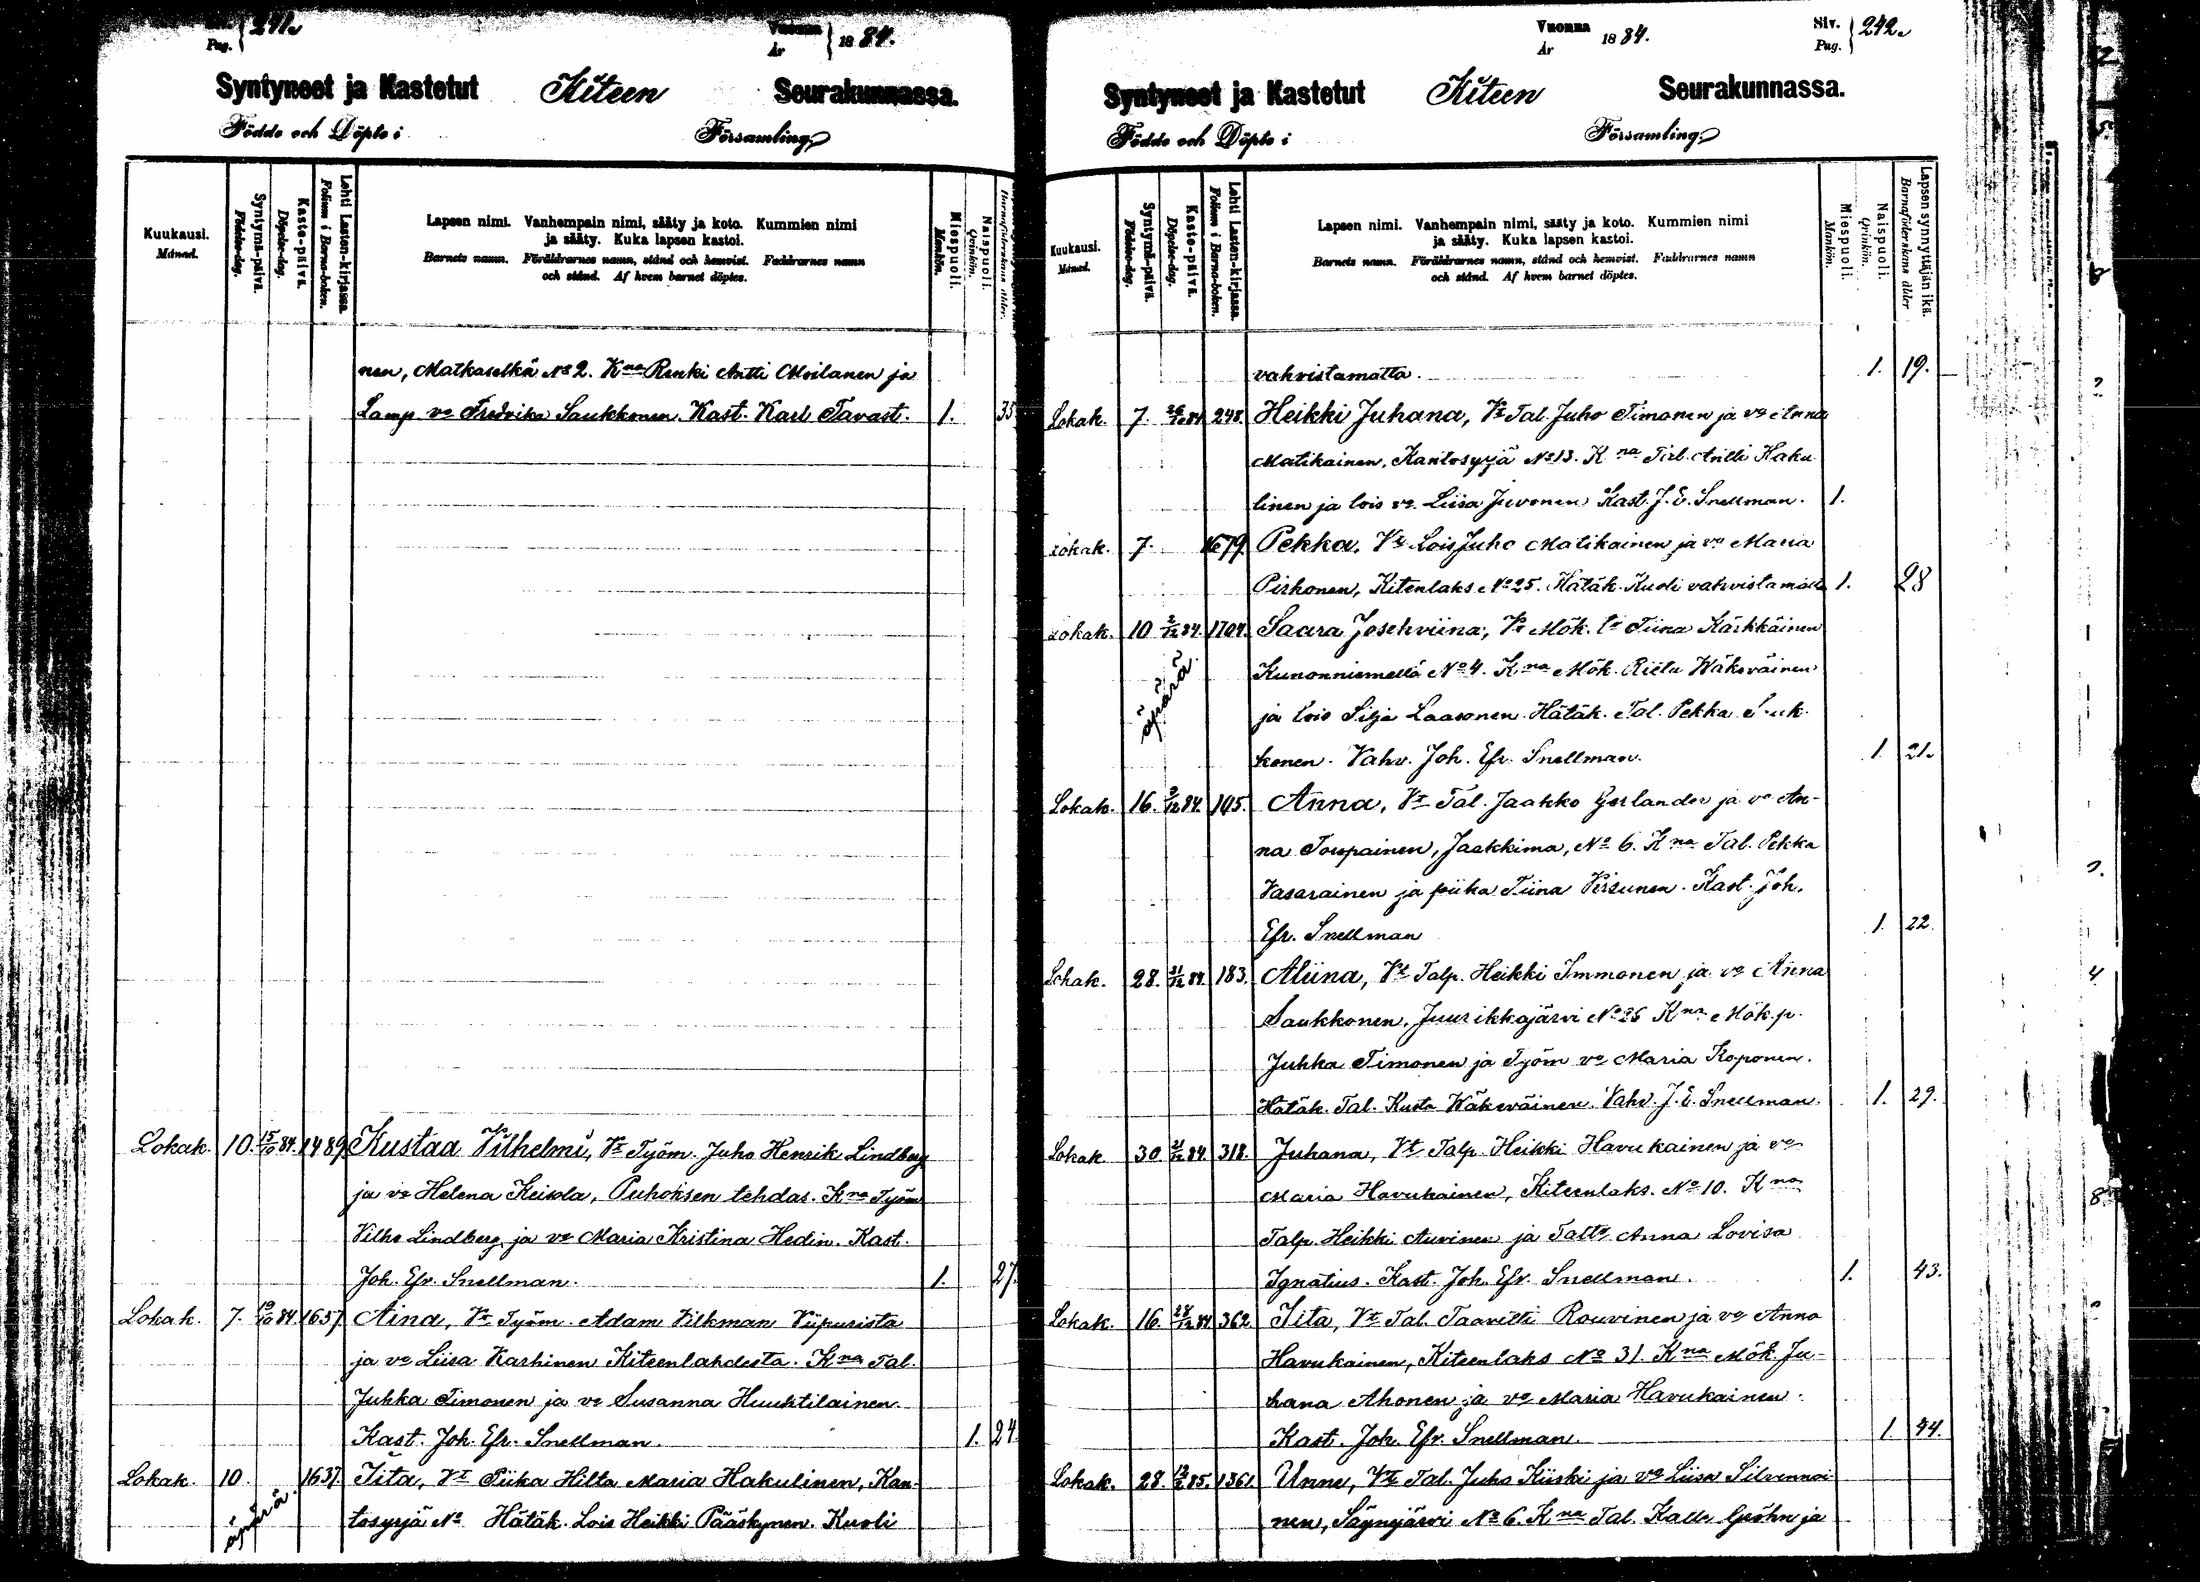 Pag. 241.
Vuonna
År 1884.
Syntyneet ja Kastetut Kiteen Seurakunnassa.
Födde och Döpte i Församling
Kuukausi.
Månad.
Syntymä-päivä.
Födelse-dag.
Kaste-päivä.
Döpelse-dag.
Lehti Lasten-kirjassa.
Folium i Barna-boken.
Lapsen nimi. Vanhempain nimi, sääty ja koto. Kummien nimi
ja sääty. Kuka lapsen kastoi.
Barnets namn. Föräldrarnes namn, stånd och hemvist. Faddrarnes namn
och stånd. Af hvem barnet döptes.
Miespuoli.
Mankön.
Naispuoli.
Qvinkön.
nen, Matkaselkä No 2. Kna Renki Antti Moilanen ja
Lamp. vo Fredrika Saukkonen. Kast. Karl Tavast. 1. 35
Lokak. 10. 15/10 84. 1489 Kustaa Vilhelmi, Vt Työm. Juho Henrik Lindberg
ja vo Helena Keisola, Puhoksen tehdas. Kna Työm
Vilho Lindberg ja vo Maria Kristina Hedin. Kast.
Joh. Efr. Snellman. 1. 27.
Lokak. 7. 19/10 84. 1657 Aina, Vt Työm. Adam Vilkman Viipurista
ja vo Liisa Karhinen Kiteenlahdesta. Kna Tal.
Juhka Timonen ja vo Susanna Huuhtilainen.
Kast. Joh. Efr. Snellman. 1. 24
Lokak. 10. 1637 Iita, Vt Piika Hilta Maria Hakulinen, Kan-
äpärä tosyrjä No Hätäk. Lois Heikki Pääskynen. Kuoli
Vuonna
År 1884.
Siv.
Pag. 242.
Syntyneet ja Kastetut Kiteen Seurakunnassa.
Födde och Döpte i Församling.
Kuukausi.
Månad.
Syntymä-päivä.
Födelse-dag.
Kaste-päivä.
Döpelse-dag.
Lehti Lasten-kirjassa.
Folium i Barna-boken.
Lapsen nimi. Vanhempain nimi, sääty ja koto. Kummien nimi
ja sääty. Kuka lapsen kastoi.
Barnets namn. Föräldrarnes namn, stånd och hemvist. Faddrarnes namn
och stånd. Af hvem barnet döptes.
Miespuoli.
Mankön.
Naispuoli.
Qvinkön.
Lapsen synnyttäjän ikä.
Barnaföderskans ålder
vahvistamatta. 1. 19.
Lokak. 7. 248. Heikki Juhana, Vt Tal. Juho Timonen ja vo Anna
Matikainen, Kantosyrjä No 13. Kna Tal. Antti Haku
linen ja lois vo. Liisa Juvonen Kast. J. E. Snellman. 1.
Lokak. 7. 1679 Pekka, Vt Lois Juho Matikainen ja vo Maria
Pirhonen, Kitenlaks No 25. Hätäk. Kuoli vahvistamatta 1. 28
Lokak. 10 2/12 84. 1704. Saara Josehviina, Vt Mök. Tiina Kärkkäinen
äpärä Kunonniemellä No 4. Kna Mök. Rietu Wäkeväinen
ja lois Silja Laasonen. Hätäk. Tal. Pekka
konen. Vahv. Joh. Efr. Snellman. 1. 21.
Lokak. 16. 9/12 84. 105. Anna, Vt Tal. Jaakko Gerlander ja vo An-
na Toupainen, Jaakkima, No 6. Kna Tal. Pekka
Vasarainen ja piika Tiina Pirsunen. Kast. Joh.
Efr. Snellman 1. 22.
Lokak. 28. 21/12 84. 183. Aliina, Vt Talp. Heikki Immonen ja vo Anna
Saukkonen, Juurikkajärvi No 26 Kna Mök. p.
Juhka Timonen ja Työm vo Maria Koponen.
Hätäk. Tal. Kusta Wäkeväinen. Vahv. J. E. Snellman 1. 29.
Lokak. 30. 21/12 84 318. Juhana, Vt Talp. Heikki Havukainen ja vo
Maria Havukainen, Kiteenlaks. No 10. Kna
Talp. Heikki Auvinen ja Anna Lovisa
Ignatius. Kast. Joh. Efr. Snellman. 1. 43.
Lokak. 16. 28/12 84 362. Iita, Vt Tal. Taavitti Rouvinen ja vo Anna
Havukainen, Kiteenlaks No 31. Kna Mök. Ju-
hana Ahonen ja vo Maria Havukainen.
Kast. Joh. Efr. Snellman. 1. 44.
Lokak. 28. 85. 1361. Unne, Vt Tal. Juho Kiiski ja vo Liisa Silvennoi
nen, Säynejärvi No 6. Kna Tal. Kalle Gröhn ja